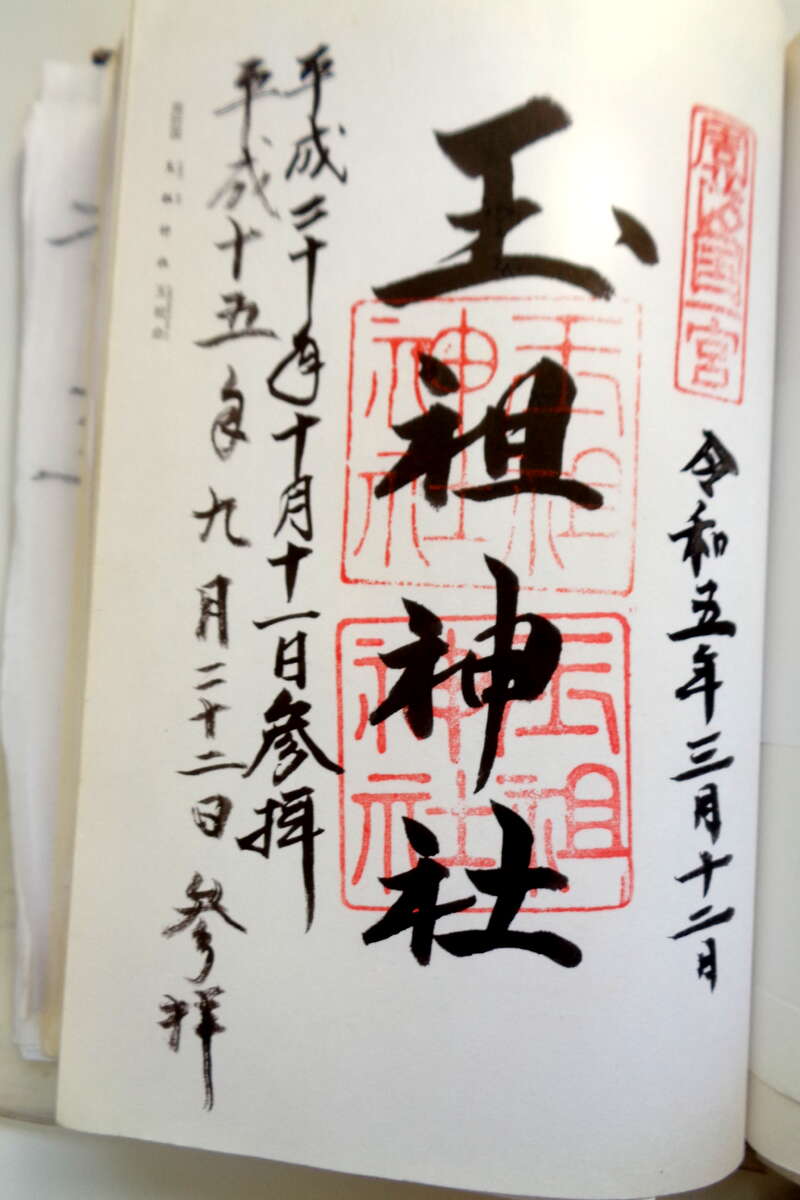 周防国一宮
令和五年三月十二日
玉祖神社
玉祖
神社
玉祖
神社
平成二十年十月十一日参拝
平成十五年九月二十二日参拝